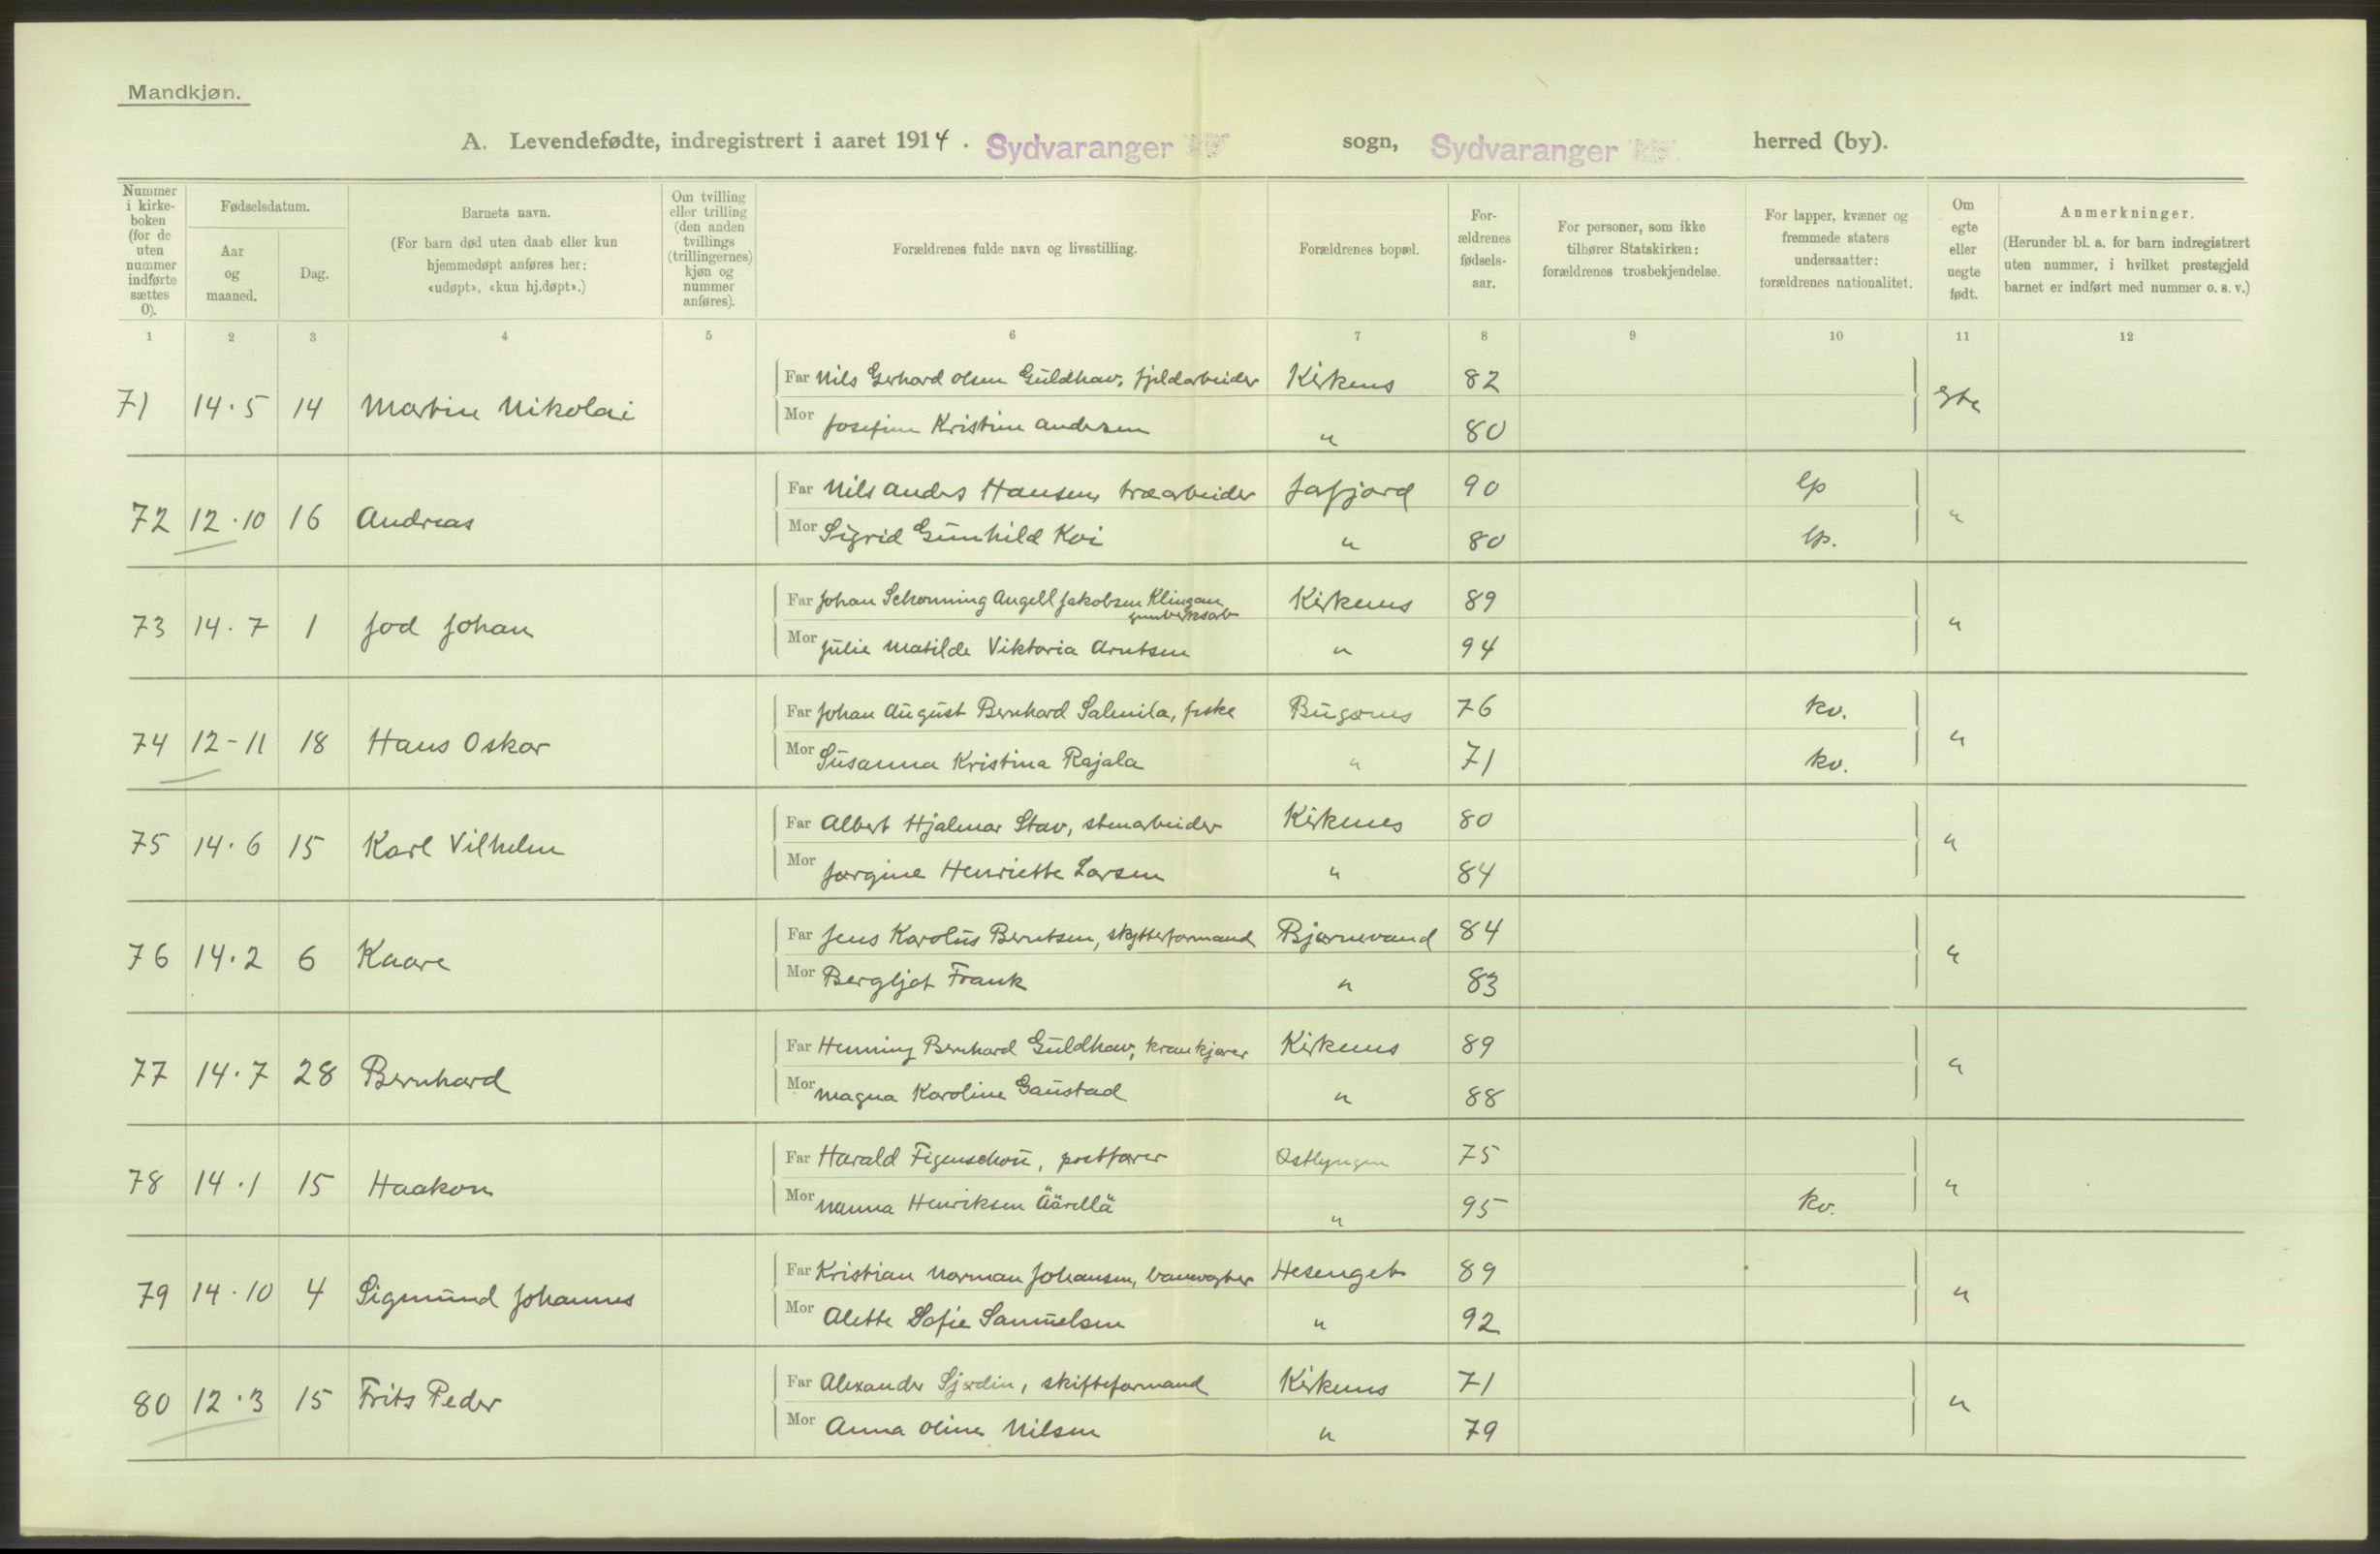 Mandkjøn.
A. Levendefødte, indregistrert i aaret 1914. Sydvaranger sogn, Sydvaranger herred (by).
Nummer i kirke-boken (for de uten nummer indførte sættes 0).
Fødselsdatum.
Aar og maaned.
Dag.
Barnets navn.
(For barn død uten daab eller kun hjemmedøpt anføres her: «udøpt», «kun hj.døpt».)
Om tvilling eller trilling (den anden tvillings (trillingernes) kjøn og nummer anføres).
Forældrenes fulde navn og livsstilling.
Forældrenes bopæl.
For-ældrenes fødsels-aar.
For personer, som ikke tilhører Statskirken: forældrenes trosbekjendelse.
For lapper, kvæner og fremmede staters undersaatter: forældrenes nationalitet.
Om egte eller uegte født.
Anmerkninger.
(Herunder bl. a. for barn indregistrert uten nummer, i hvilket prestegjeld barnet er indført med nummer o. s. v.)
1 2 3 4 5 6 7 8 9 10 11 12
71 14.5 14 Martin Nikolai Far Nils Gerhard Olsen Guldhav, fjeldarbeider Kirkenes 82 Egte
Mor Josefine Kristine Andersen " 80
72 12.10 16 Andreas Far Nils Anders Hansen, træarbeider Jafjord 90 lp "
Mor Sigrid Gunhild Koi " 80 lp.
73 14.7 1 Jod Johan Far Johan Schønning Angell Jakobsen Klingan, Kirkenes 89 "
Mor Julie Matilde Viktoria Arntsen " 94
74 12-11 18 Hans Oskar Far Johan August Bernhard Salmila, fiske Bugønes 76 kv. "
Mor Susanna Kristina Rajala " 71 kv.
75 14.6 15 Karl Vilhelm Far Albert Hjalmar Stav, stenarbeider Kirkenes 80 "
Mor Jørgine Henriette Larsen " 84
76 14.2 6 Kaare Far Jens Karolus Berntsen, skytterformand Bjørnevand 84 "
Mor Bergljot Frank " 83
77 14.7 28 Bernhard Far Henning Bernhard Guldhav, krankjører Kirkenes 89 "
Mor Magna Karoline Gaustad " 88
78 14.1 15 Haakon Far Harald Figenschou, postfører Østlyngen 75 "
Mor Nanna Henriksen Äärellä " 95 kv.
79 14.10 4 Sigmund Johannes Far Kristian Norman Johansen, banevogter Hesenget 89 "
Mor Alette Sofie Samuelsen " 92
80 12.3 15 Frits Peder Far Alexander Sjødin, skifteformand Kirkenes 71 "
Mor Anna Oline Nilsen " 79